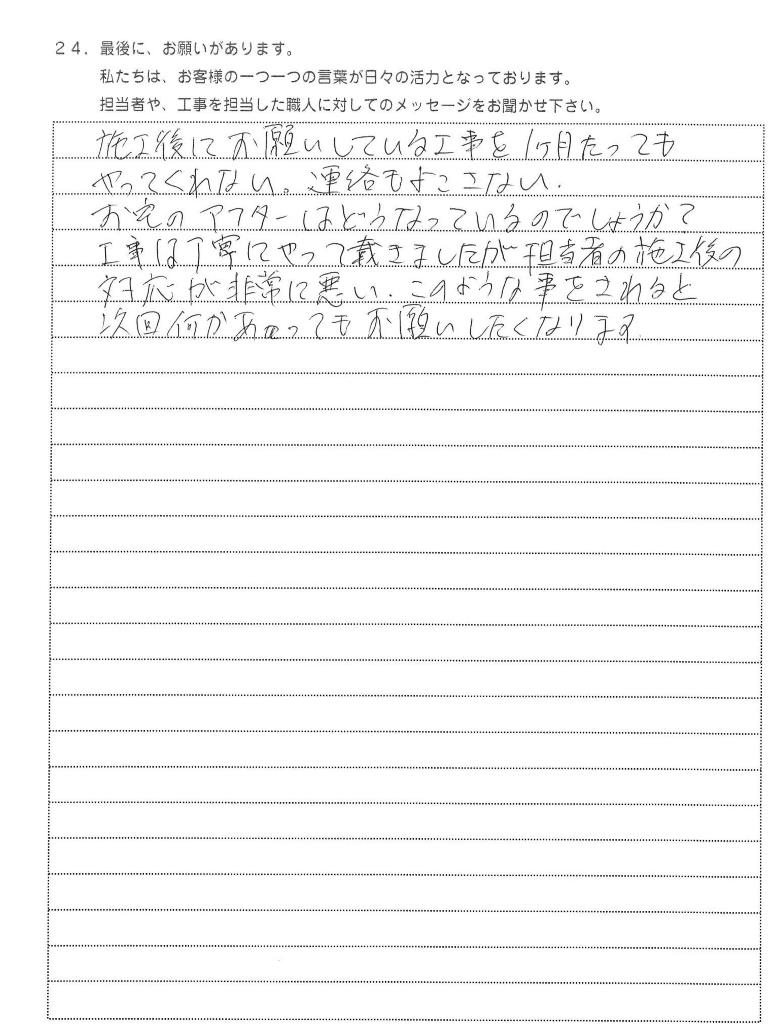 24. 最後に、お願いがあります。
私たちは、お客様の一つ一つの言葉が日々の活力となっております。
担当者や、工事を担当した職人に対してのメッセージをお聞かせ下さい。
施工後にお願いしている工事を1ヶ月たっても
やってくれない。連絡もよこさない.
お宅のアフターはどうなっているのでしょうか?
工事は丁寧にやって載きましたが担当者の施工後の
対応が非常に悪い.このような事をされると
次回何かあってもお願いしたくなります